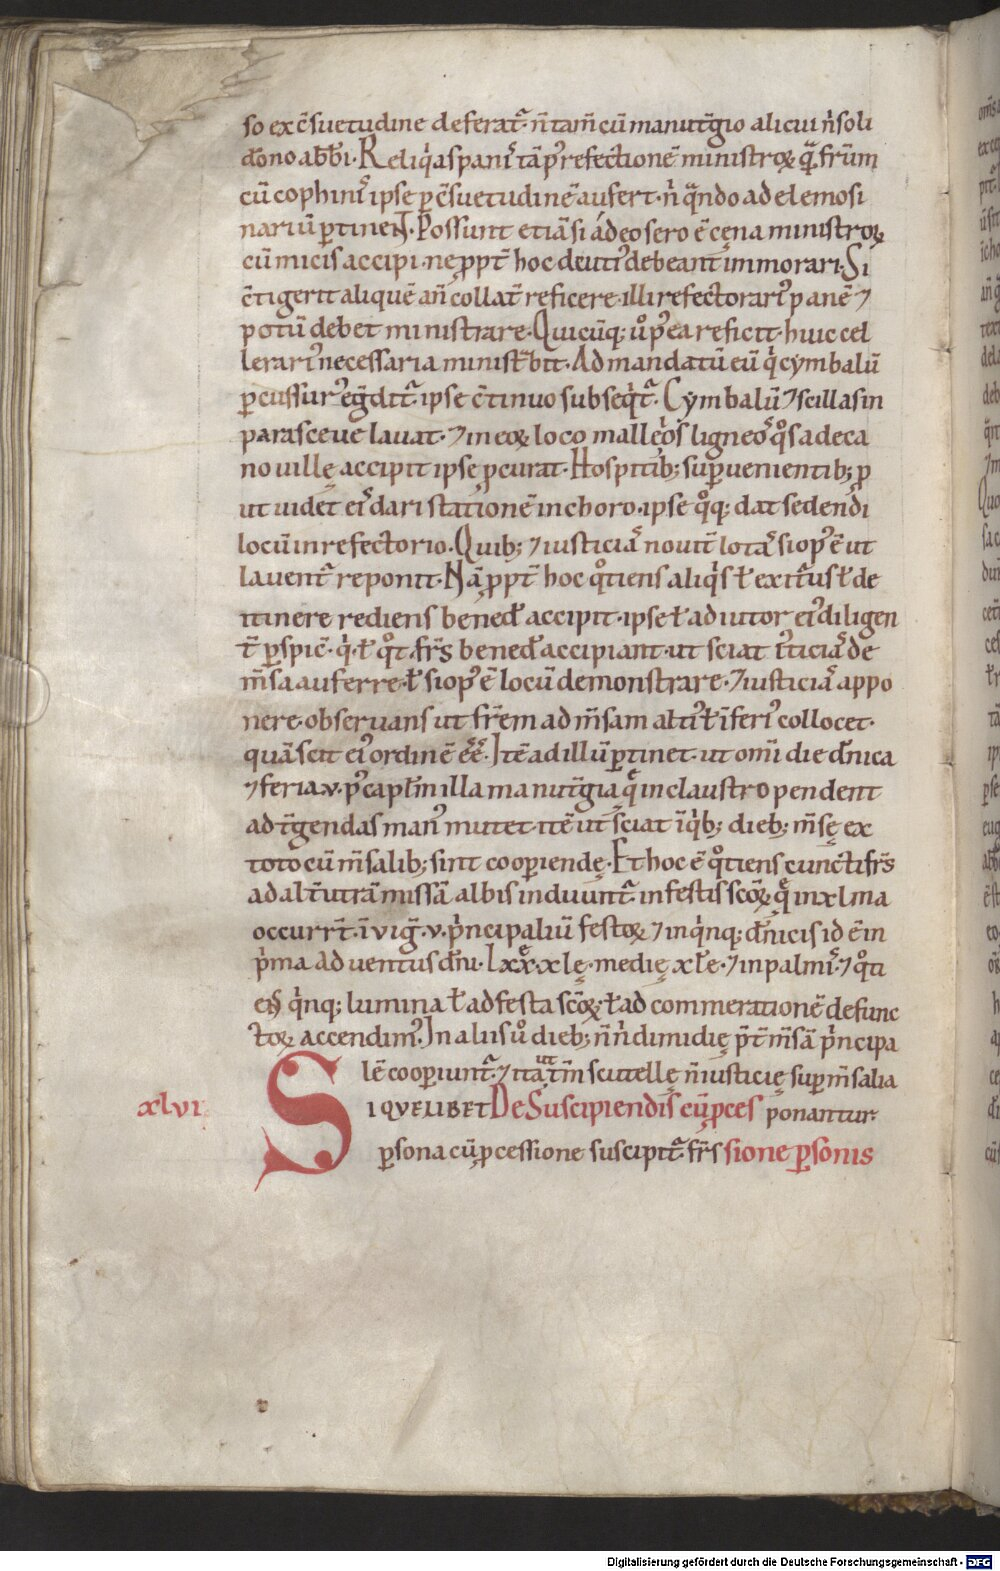 so ex c̄suetudine deferat᷑. n̄ tam̄ cū manut̄gio alicui n̓ soli
dōno abb̄i. Reliq̓as panis tā p᷒ refectionē ministroꝝ q̈̄ fr̄um
cū cophinis ipse ꝑ c̄suetudinē aufert. n̓ q̄ndo ad elemosi
nariū ꝑtinent. Possunt etiā si ádeo sero ē cęna ministroꝝ
cū micis accipi. ne ꝓpt̄ hoc deuti᷒ debeant immorari. Si
c̄tigerit aliquē an̄ collat̄ reficere. illi refectorari᷒ panē ⁊
potū debet ministrare. Quicūq; ů p᷒ea reficit. huic cel
lerari᷒ necessaria minist̄bit. Ad mandatū eū q̓ cymbalū
ꝑcussur᷒ eḡdit᷑. ipse c̄tinuo subseq̓t᷑. Cymbalū ⁊ scillas in
parasceue lauat. ⁊ in eoꝝ loco malleolos ligneos q̊s a deca
no uillę accipit ipse ꝓcurat. Hospitib; suꝑuenientib; ꝓ
ut uidet eis dari stationē in choro. ipse q̊q; dat sedendi
locū in refectorio. Quib; ⁊ iusticiā nouit̄ lotā si op᷒ ē ut
lauent᷑ reponit. Nā ꝓpt̄ hoc q̊tiens aliq̓s ł exitur᷒ ł de
itinere rediens bened̄ accipit. ipse ł adiutor ei᷒ diligen
t̄ ꝑspic̄. q̓. ł q̊t fr̄s bened̄ accipiant. ut sciat i᷒ticiā de
m̄sa auferre. ł si op᷒ ē locū demonstrare. ⁊ iusticiā appo
nere. obseruans ut fr̄em ad m̄sam alti᷒ ł īferi᷒ collocet.
quā scit ei᷒ ordinē ēē. Itē ad illū ꝑtinet. ut omi die dn̄ica
⁊ feria .v. p᷒ capłm illa manut̄gia q̄ in claustro pendent
ad t̄gendas man᷒ mutet. itē ut sciat ī q̓b; dieb; m̄sę ex
toto cū m̄salib; sint cooꝑiendę. Et hoc ē q̊tiens cuncti fr̄s
ad alt̄utrā missā albis induunt᷑. in festis sc̄oꝝ. q̄ in xlma
occurr̄t. ī viḡ. v. p̓ncipaliū festoꝝ ⁊ in q̓nq; dn̄icis id ē in
p̓ma aduentus dn̄i. lxx̄. xlę. medię xłe. ⁊ in palmis. ⁊ q̊ti
ens q̓nq; lumina ł ad festa sc̄oꝝ. ł ad commerationē defunc
toꝝ accendim᷒. In aliis ů dieb; n̄ n̓ dimidię p̄t̄ m̄sā p̓ncipa
lē cooꝑiunt᷑. ⁊ ita ut tm̄ scutellę n̄ iusticię suꝑ m̄salia
xlvi SIQVELIBET De Suscipiendis cū ꝓces ponantur.
ꝑsona cū ꝓcessione suscipit᷑. fr̄s sione ꝑsonis
Digitalisierung gefördert durch die Deutsche Forschungsgemeinschaft - DFG